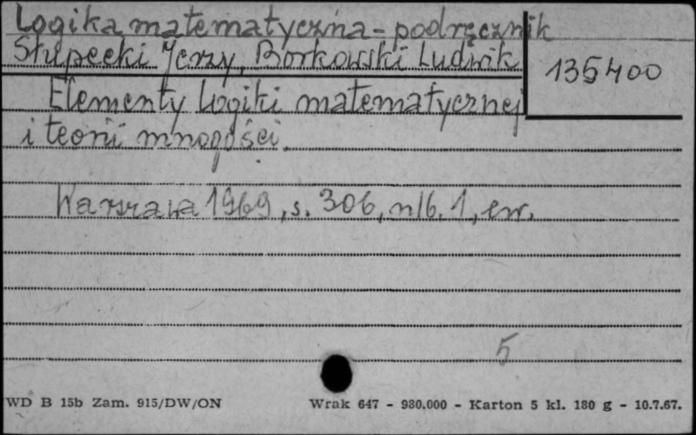 Logika matematyczna - podręcznik
Słupecki Jerzy, Borkowski Ludwik
135400
Elementy logiki matematycznej
i teorii mnogości.
Warszawa 1969, s. 306, nlb. 1, err.
5
WD B 15b Zam. 915/DW/ON
Wrak 647 - 980.000 - Karton 5 kl. 180 g - 10.7.67.